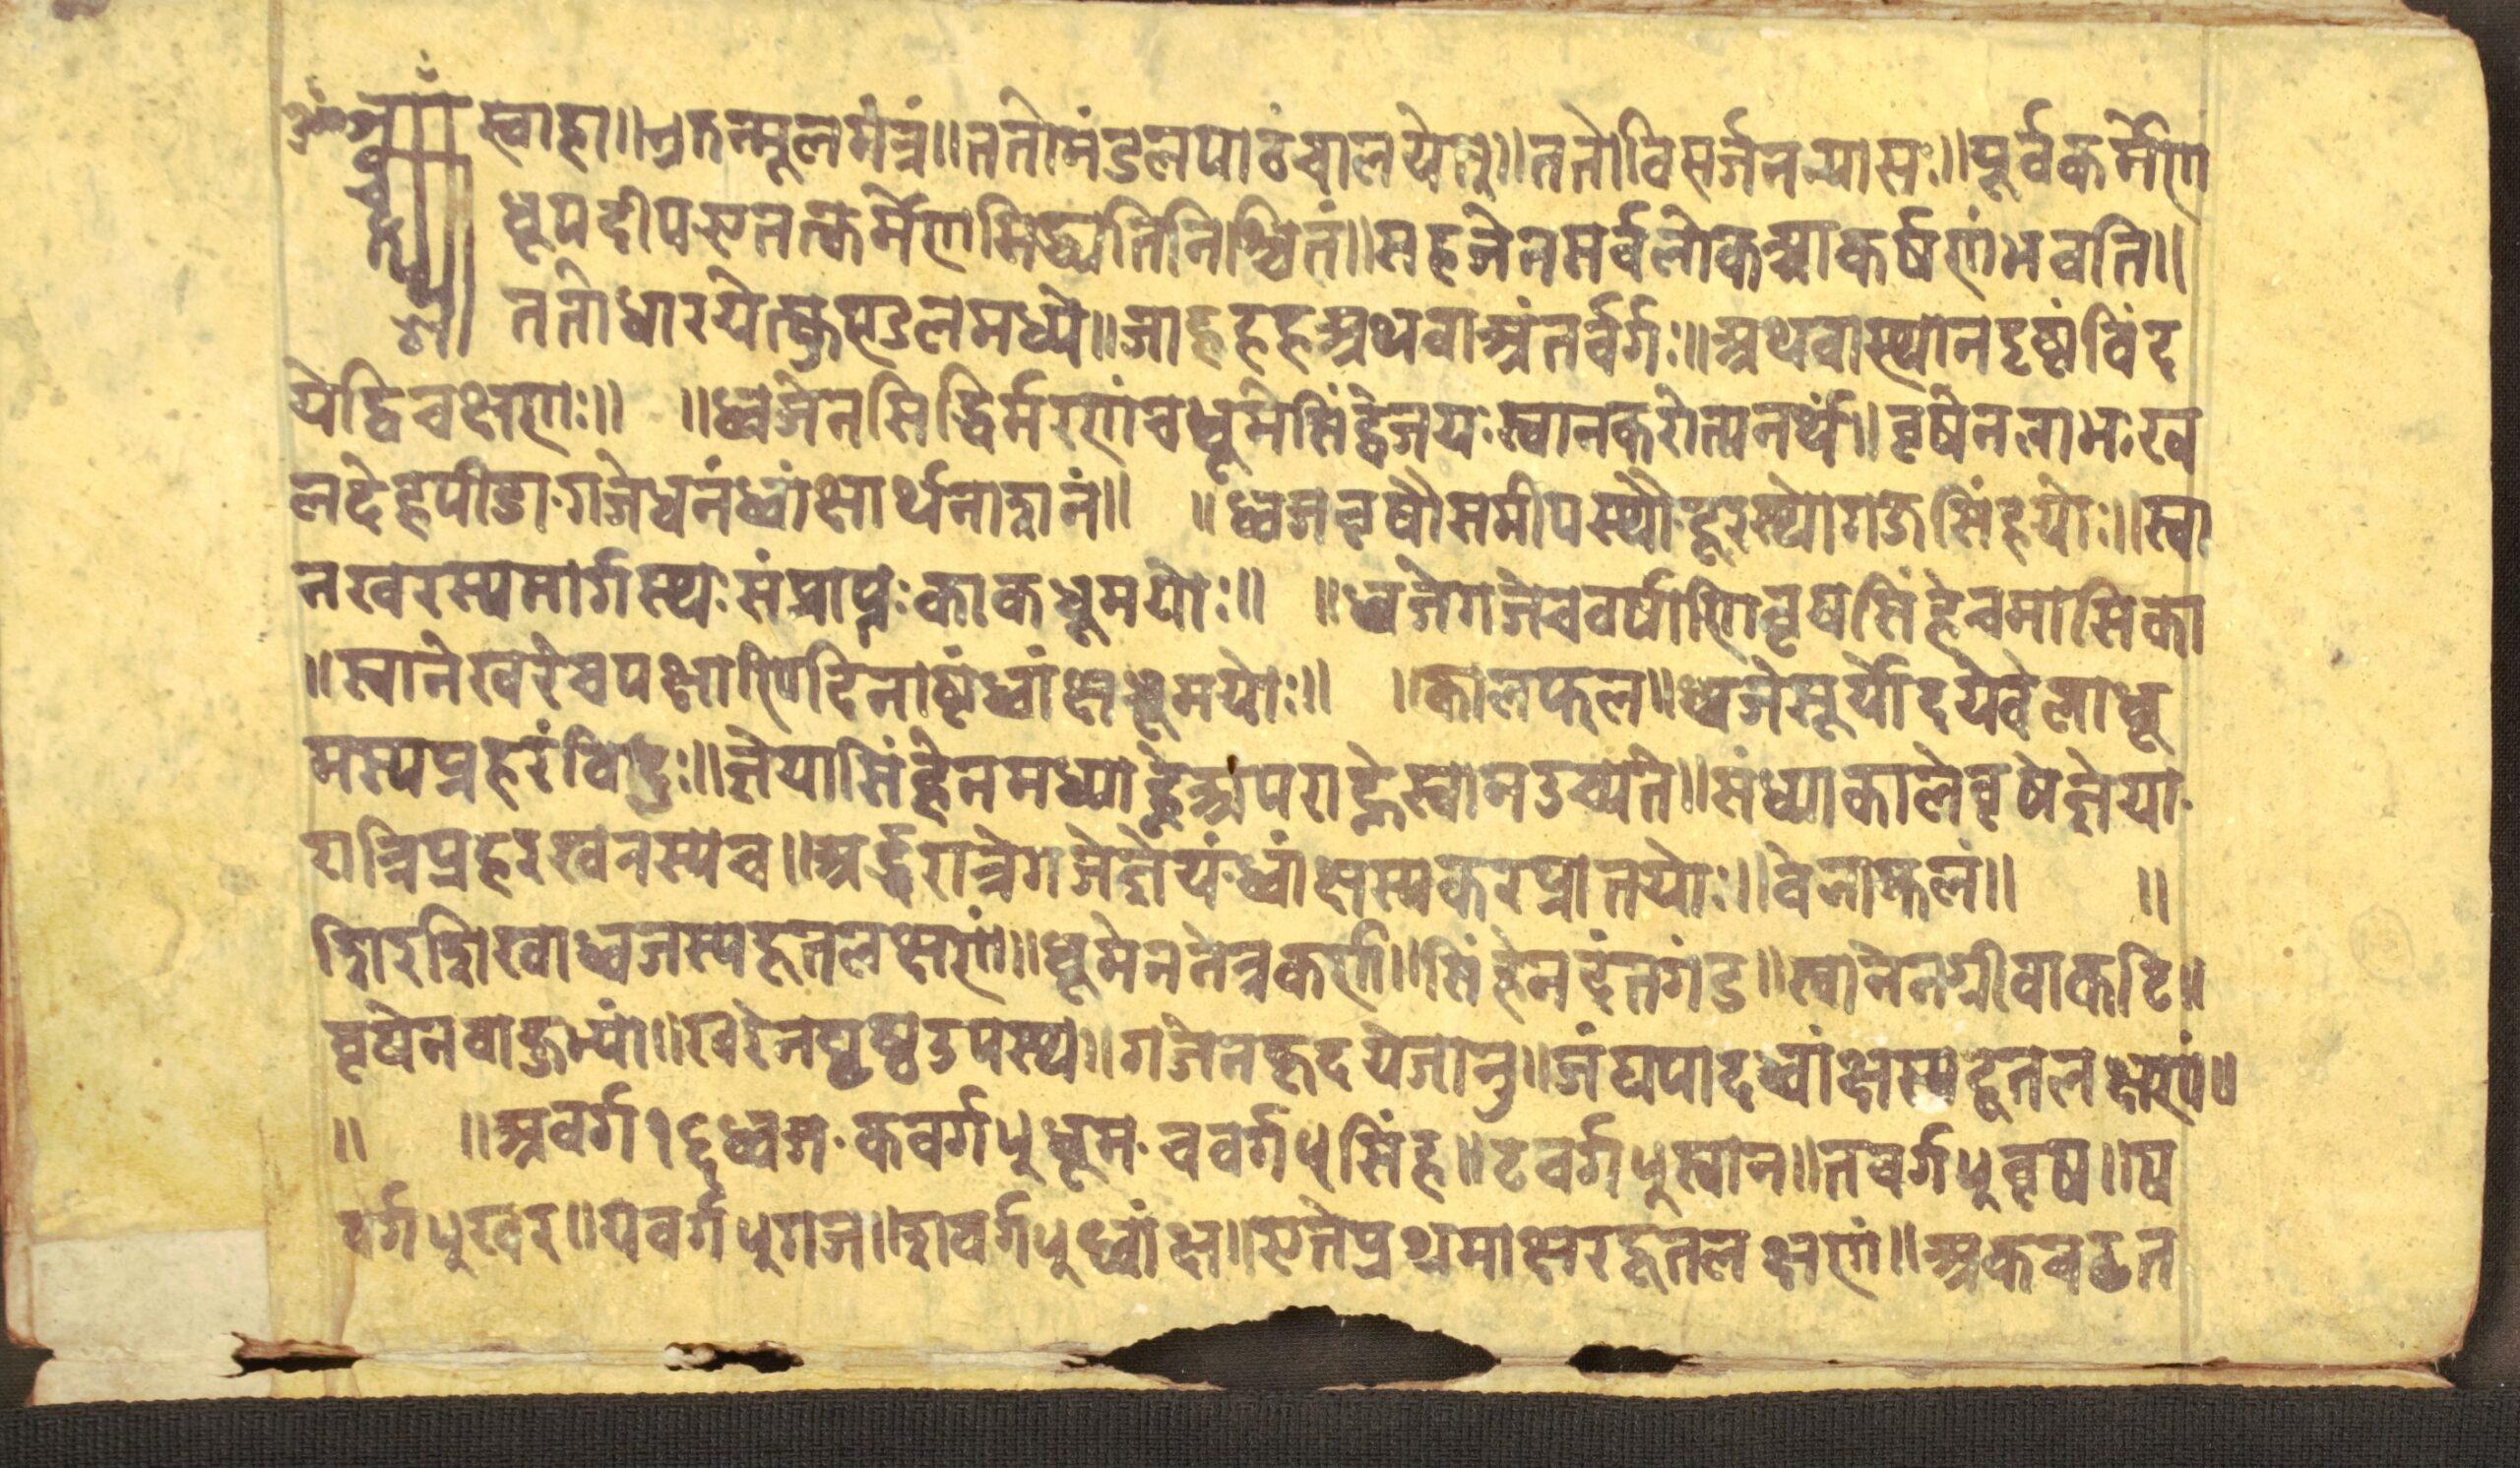 स्वाहा॥ एतन्मूलमंत्रं॥ ततोमंडलपाठंचालयेत्तु॥ ततोविसर्जनन्यासः॥ पूर्वकर्मेण
धूपदीपएतत्कर्मेणसिद्ध्यतिनिश्चितं॥ सहजेनसर्वलोकआकर्षणंभवति॥
ततोधारयेत्कुण्डलमध्ये॥ अथवाअंतर्वर्गः॥ अथवास्थानदृष्टंविंद
येद्विचक्षणः॥ ॥ध्वजेनसिद्धिर्मरणंचधूमेसिंहेजयःस्वानकरोत्यनर्थं॥ वृषेनलाभःख
लदेहपीडा·गजेधनंध्वांक्षार्थनाशनं॥ ॥ध्वजवृषौसमीपस्थौदूरस्थोगजसिंहयोः॥ स्वा
नखरस्यमार्गस्थःसंप्राप्तःकाकधूमयोः॥ ॥ध्वजेगजेचवर्षाणिवृषसिंहेचमासिका
॥स्वानेखरेचपक्षाणिदिनाष्टंध्वांक्षधूमयोः॥ ॥कालफल॥ ध्वजेसूर्योदयेवेलाधू
मस्यप्रहरंविदुः॥ ज्ञेयासिंहेनमध्याह्नेअपराह्नेस्वानउच्यते॥ संध्याकालेवृषेज्ञेया·
रात्रिप्रहरखरस्यच॥ अर्द्धरात्रेगजेज्ञेयं·ध्वांक्षस्यकरप्रातयोः॥ वेलाफलं॥ ॥
शिरशिखाध्वजस्यहूतलक्षणं॥ धूमेननेत्रकर्ण॥ सिंहेनदंतगंड॥ स्वानेनग्रीवाकटि॥
वृषेनबाहुभ्यां॥ खरेनपृष्ठउपस्थ॥ गजेनहृदयेजानु॥ जंघपादध्वांक्षस्यहूतलक्षणं॥
॥ ॥अवर्ग१६ध्वज·कवर्ग५धूम·चवर्ग५सिंह॥ टवर्ग५स्वान॥ तवर्ग५वृष॥ प
वर्ग५खर॥ यवर्ग५गज॥ शवर्ग५ध्वांक्ष॥ एतेप्रथमाक्षरहूतलक्षणं॥ अकचटत